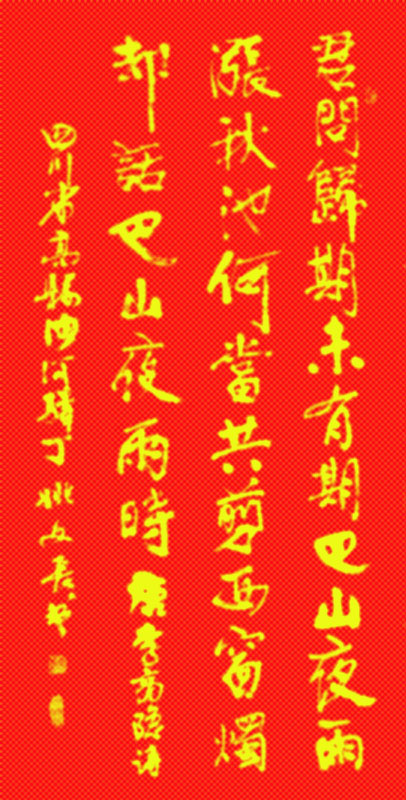 君問歸期未有期巴山夜雨
漲秋池何當共剪西窗燭
却話巴山夜雨時唐李商隱詩
四川省高縣沙河鎮丁姚文長書